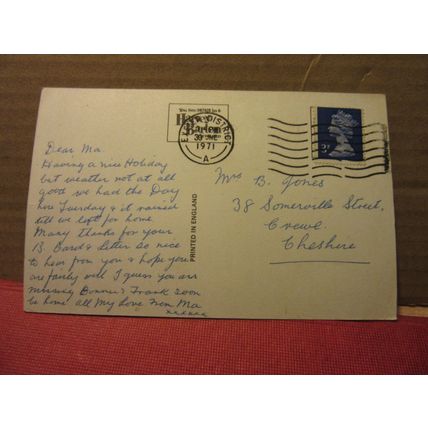 Dear Ma
Having a nice Holiday
but weather not at all
good we had the Day
here Tuesday & it rained
till we left for home.
Many thanks for your
B. Card & letter so nice
to hear from you & hope you
are fairly well I guess you are
missing Bonnie & Frank soon
be home all My love From Ma
xxxxxx
PRINTED IN ENGLAND
DISTRICT
30 JNE
1971
A
3P
Mrs B. Jones
38 Somerville Street,
Crewe.
Cheshire